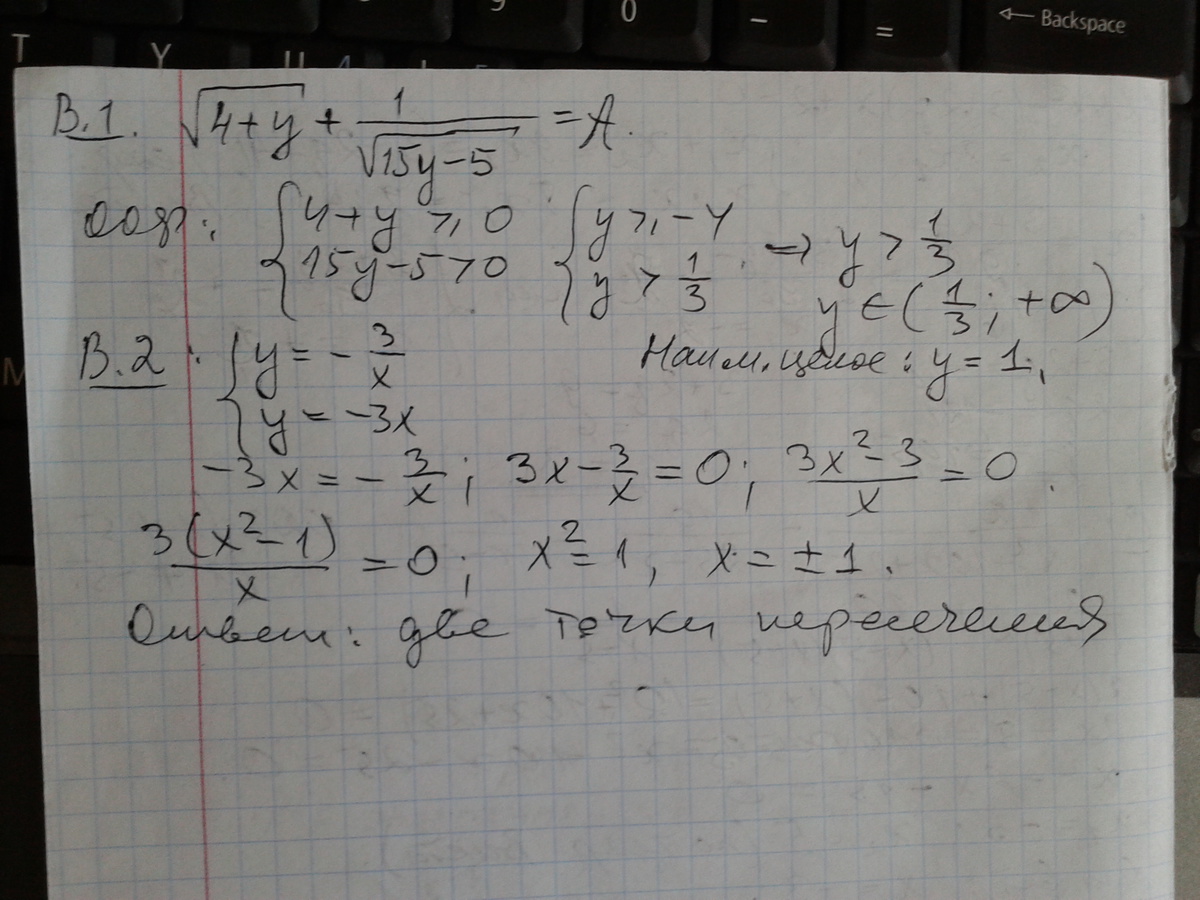 T Y U 9 0 - = ← Backspace
В.1. √(4+y) + 1/√(15y-5) = A.
ООФ: { 4+y ⩾ 0 { y ⩾ -4
{ 15y-5 > 0 { y > 1/3 . ⇒ y > 1/3
y ∈ (1/3; +∞)
В.2. { y = -3/x Наим. целое: y = 1.
{ y = -3x
-3x = -3/x; 3x - 3/x = 0; (3x²-3)/x = 0.
3(x²-1)/x = 0; x² = 1, x = ±1.
Ответ: две точки пересечения